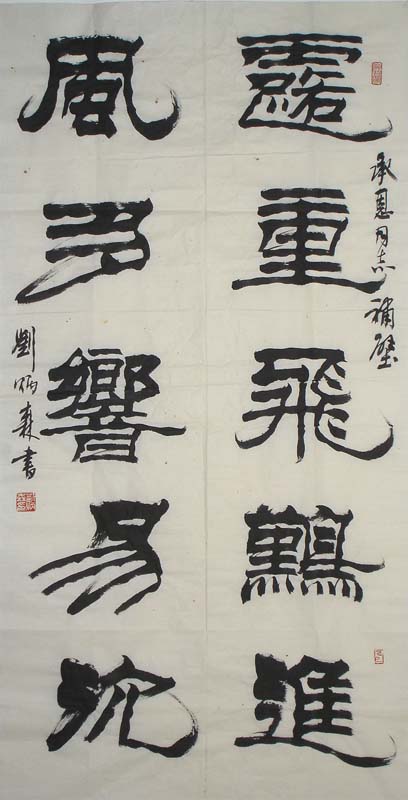 承恩同志補壁
露重飛難進
風多響易沈
劉炳森書